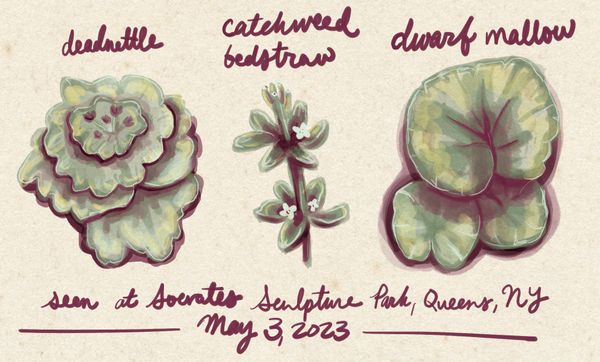 deadnettle
catchweed
bedstraw
dwarf mallow
seen at Socrates Sculpture Park, Queens, NY
May 3, 2023